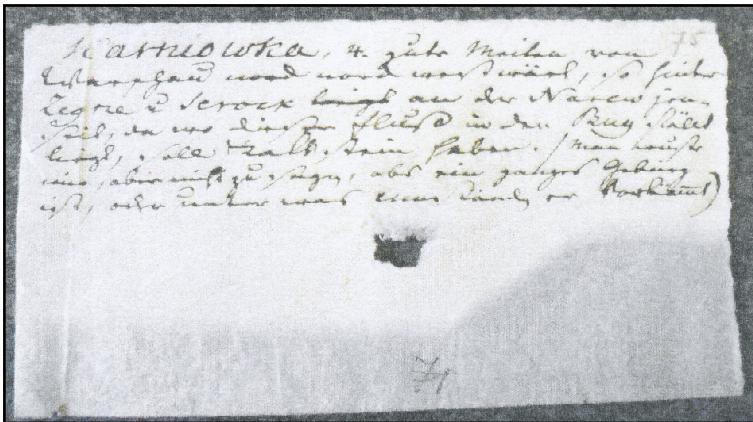 75
Karniowka, 4 gute Meilen von
Warschau nord nord westwärts, so hinter
Zegrze u Serock liegt an der Narew jen
seits, da wo dieser Fluss in den Bug fällt
liegt, soll Kalkstein haben. (Man konnte
mir, aber nicht zu sagen, obs ein ganzes Gebirg
ist, oder unter was er Vorkommt)
74